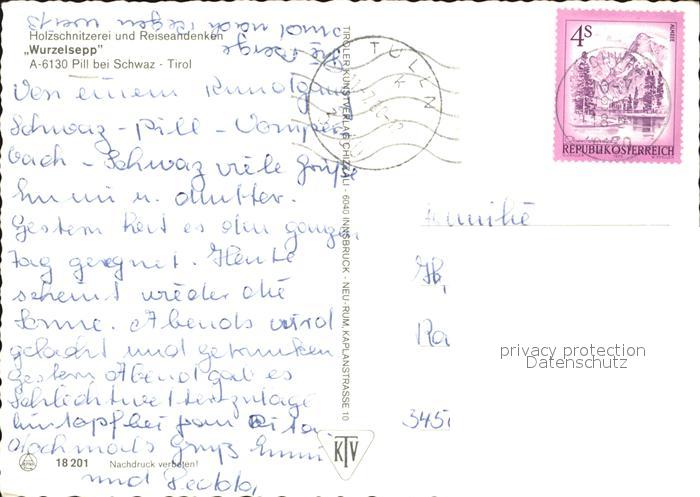 Holzschnitzerei und Reiseandenken
„Wurzelsepp"
A-6130 Pill bei Schwaz - Tirol
Von einem Rundgang
Schwaz - Pill - Vomper
bach - Schwaz viele Grüße
u. Mutter.
Gestern hat es den ganzen
Tag geregnet. Heute
scheint wieder die
Sonne. Abends wird
gelacht und getrunken
gestern Abend gab es
Schlechtwetterzulage
Eintopf bei
nochmals Gruß
und
18 201 Nachdruck verboten!
TIROLER KUNSTVERLAG CHIZZALI - 6040 INNSBRUCK - NEU-RUM, KAPLANSTRASSE 10
KTV
TULLN
4 S
ALMSEE
REPUBLIK ÖSTERREICH
Familie
Ra
345
privacy protection
Datenschutz